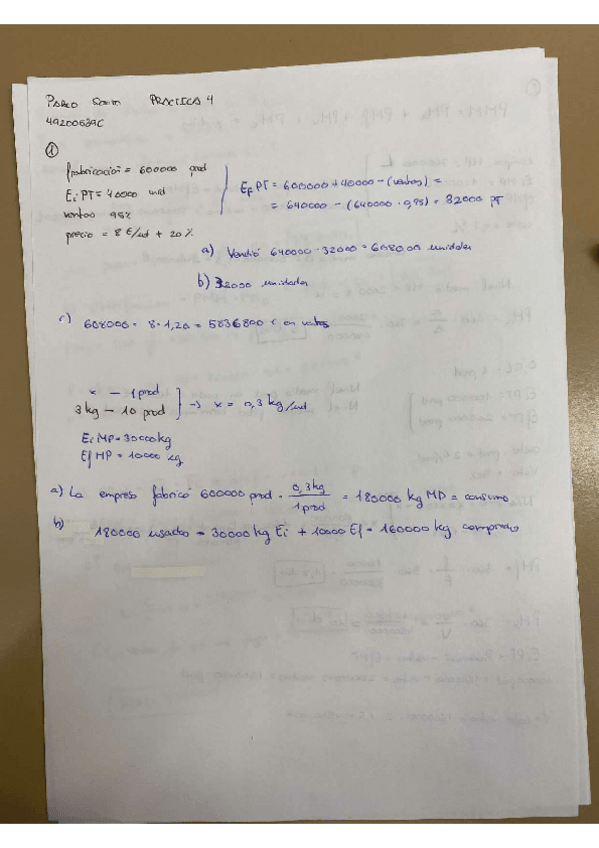 PRACTICA 4
49200639C
①
fabricación = 600000 prod
Ei PT = 40000 und
ventas 95%
precio = 8 €/ud + 20%
Ef PT = 600000 + 40000 - (ventas) =
= 640000 - (640000 · 0,95) = 32000 PT
a) Vendió 640000 - 32000 = 608000 unidades
b) 32000 unidades
c) 608000 · 8 · 1,20 = 5836800 € en ventas
x — 1 prod
3 kg — 10 prod } → x = 0,3 kg/ud
Ei MP = 30000 kg
Ef MP = 10000 kg
a) La empresa fabricó 600000 prod · 0,3 kg / 1 prod = 180000 kg MP = consumo
b) 180000 usados - 30000 kg Ei + 10000 Ef = 160000 kg comprado